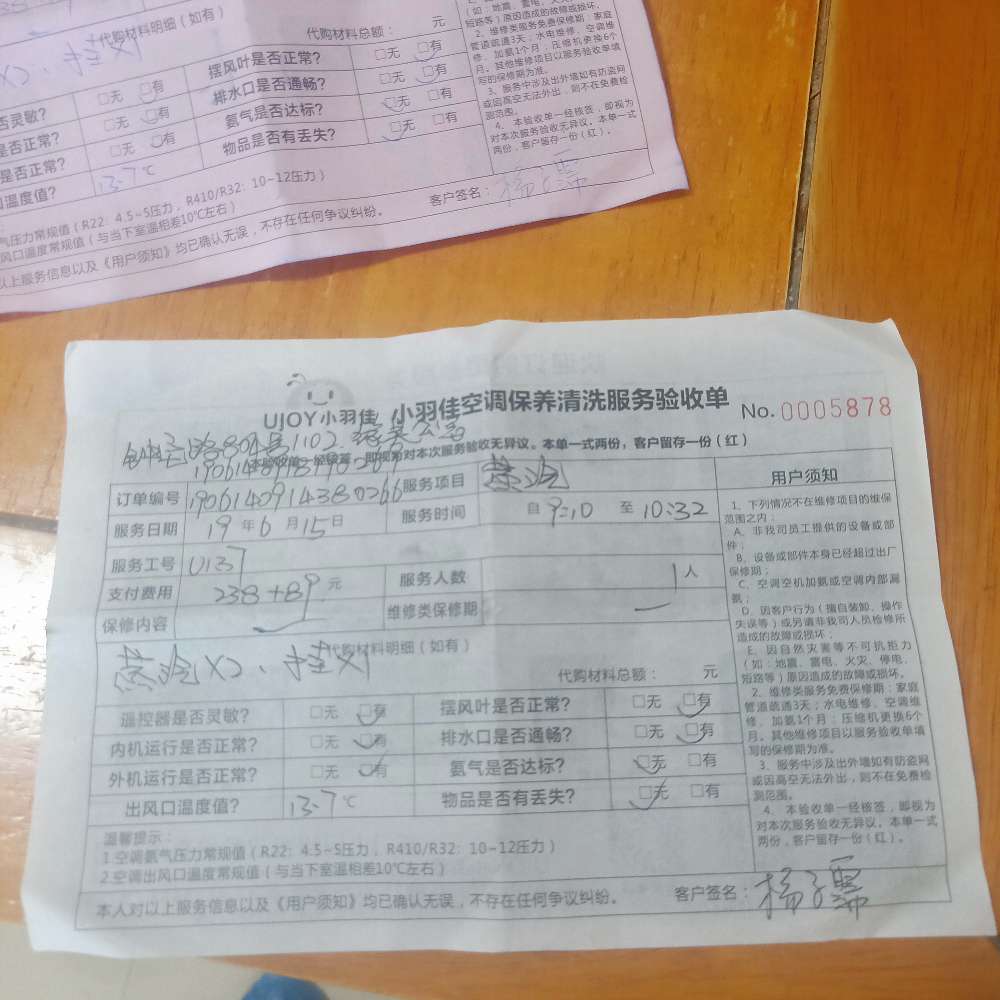 代购材料明细(如有)
代购材料总额: 元
摆风叶是否正常? □无 □有
排水口是否通畅? □无 □有
否灵敏? □无 □有
氨气是否达标? □无 □有
是否正常? □无 □有
物品是否有丢失? □无 □有
是否正常? □无 □有
温度值? 13.7℃
(如:地震、雷电、火灾、停电、
短路等)原因造成的故障或损坏.
2、维修类服务免费保修期:家庭
管道疏通3天;水电维修、空调维
修、加氨1个月;压缩机更换6个
月。其他维修项目以服务验收单填
写的保修期为准。
3、服务中涉及出外墙如有防盗网
或因高空无法外出,则不在免费检
测范围。
4、本验收单一经核签,即视为
对本次服务验收无异议。本单一式
两份,客户留存一份(红)。
气压力常规值(R22:4.5~5压力,R410/R32:10~12压力)
风口温度常规值(与当下室温相差10℃左右)
以上服务信息以及《用户须知》均已确认无误,不存在任何争议纠纷。
客户签名:
UJOY小羽佳 小羽佳空调保养清洗服务验收单 No.0005878
本验收单一经核签,即视为对本次服务验收无异议。本单一式两份,客户留存一份(红)
订单编号 1906140914380266 服务项目 蒸洗
服务日期 19年6月15日 服务时间 自 9:10 至 10:32
服务工号 U137
支付费用 238+89元 服务人数 1人
保修内容 维修类保修期
代购材料明细(如有)
蒸洗X2、挂X1
代购材料总额: 元
遥控器是否灵敏? □无 □有 摆风叶是否正常? □无 □有
内机运行是否正常? □无 □有 排水口是否通畅? □无 □有
外机运行是否正常? □无 □有 氨气是否达标? □无 □有
出风口温度值? 13.7℃ 物品是否有丢失? □无 □有
温馨提示:
1.空调氨气压力常规值(R22:4.5~5压力,R410/R32:10~12压力)
2.空调出风口温度常规值(与当下室温相差10℃左右)
本人对以上服务信息以及《用户须知》均已确认无误,不存在任何争议纠纷。
客户签名:
用户须知
1、下列情况不在维修项目的维保
范围之内:
A、非我司员工提供的设备或部
件;
B、设备或部件本身已经超过出厂
保修期;
C、空调空机加氨或空调内部漏
氨;
D、因客户行为(擅自装卸、操作
失误等)或另请非我司人员检修所
造成的故障或损坏;
E、因自然灾害等不可抗拒力
(如:地震、雷电、火灾、停电、
短路等)原因造成的故障或损坏。
2、维修类服务免费保修期:家庭
管道疏通3天;水电维修、空调维
修、加氨1个月;压缩机更换6个
月。其他维修项目以服务验收单填
写的保修期为准。
3、服务中涉及出外墙如有防盗网
或因高空无法外出,则不在免费检
测范围。
4、本验收单一经核签,即视为
对本次服务验收无异议。本单一式
两份,客户留存一份(红)。